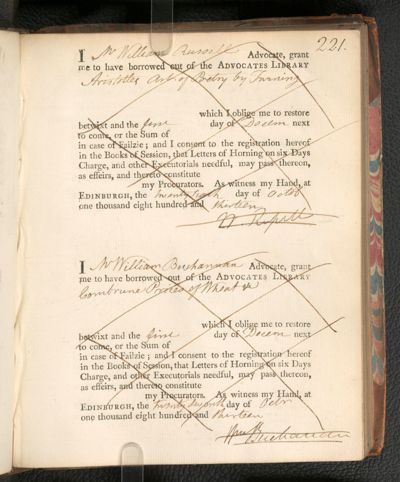 221.
I Mr William Russell Advocate, grant
me to have borrowed out of the ADVOCATES LIBRARY
Aristotles Art of Poetry by Twining
which I oblige me to restore
betwixt and the first day of Decem next
to come, or the Sum of
in case of Failzie; and I consent to the registration hereof
in the Books of Session, that Letters of Horning on six Days
Charge, and other Executorials needful, may pass thereon,
as effeirs, and thereto constitute
my Procurators. As witness my Hand, at
EDINBURGH, the day of Octob
one thousand eight hundred and thirteen
W. Russell
I Mr William Buchannan Advocate, grant
me to have borrowed out of the ADVOCATES LIBRARY
Combrune Prices of Wheat &c
which I oblige me to restore
betwixt and the first day of Decem next
to come, or the Sum of
in case of Failzie; and I consent to the registration hereof
in the Books of Session, that Letters of Horning on six Days
Charge, and other Executorials needful, may pass thereon,
as effeirs, and thereto constitute
my Procurators. As witness my Hand, at
EDINBURGH, the twenty seventh day of
one thousand eight hundred and thirteen
Buchanan